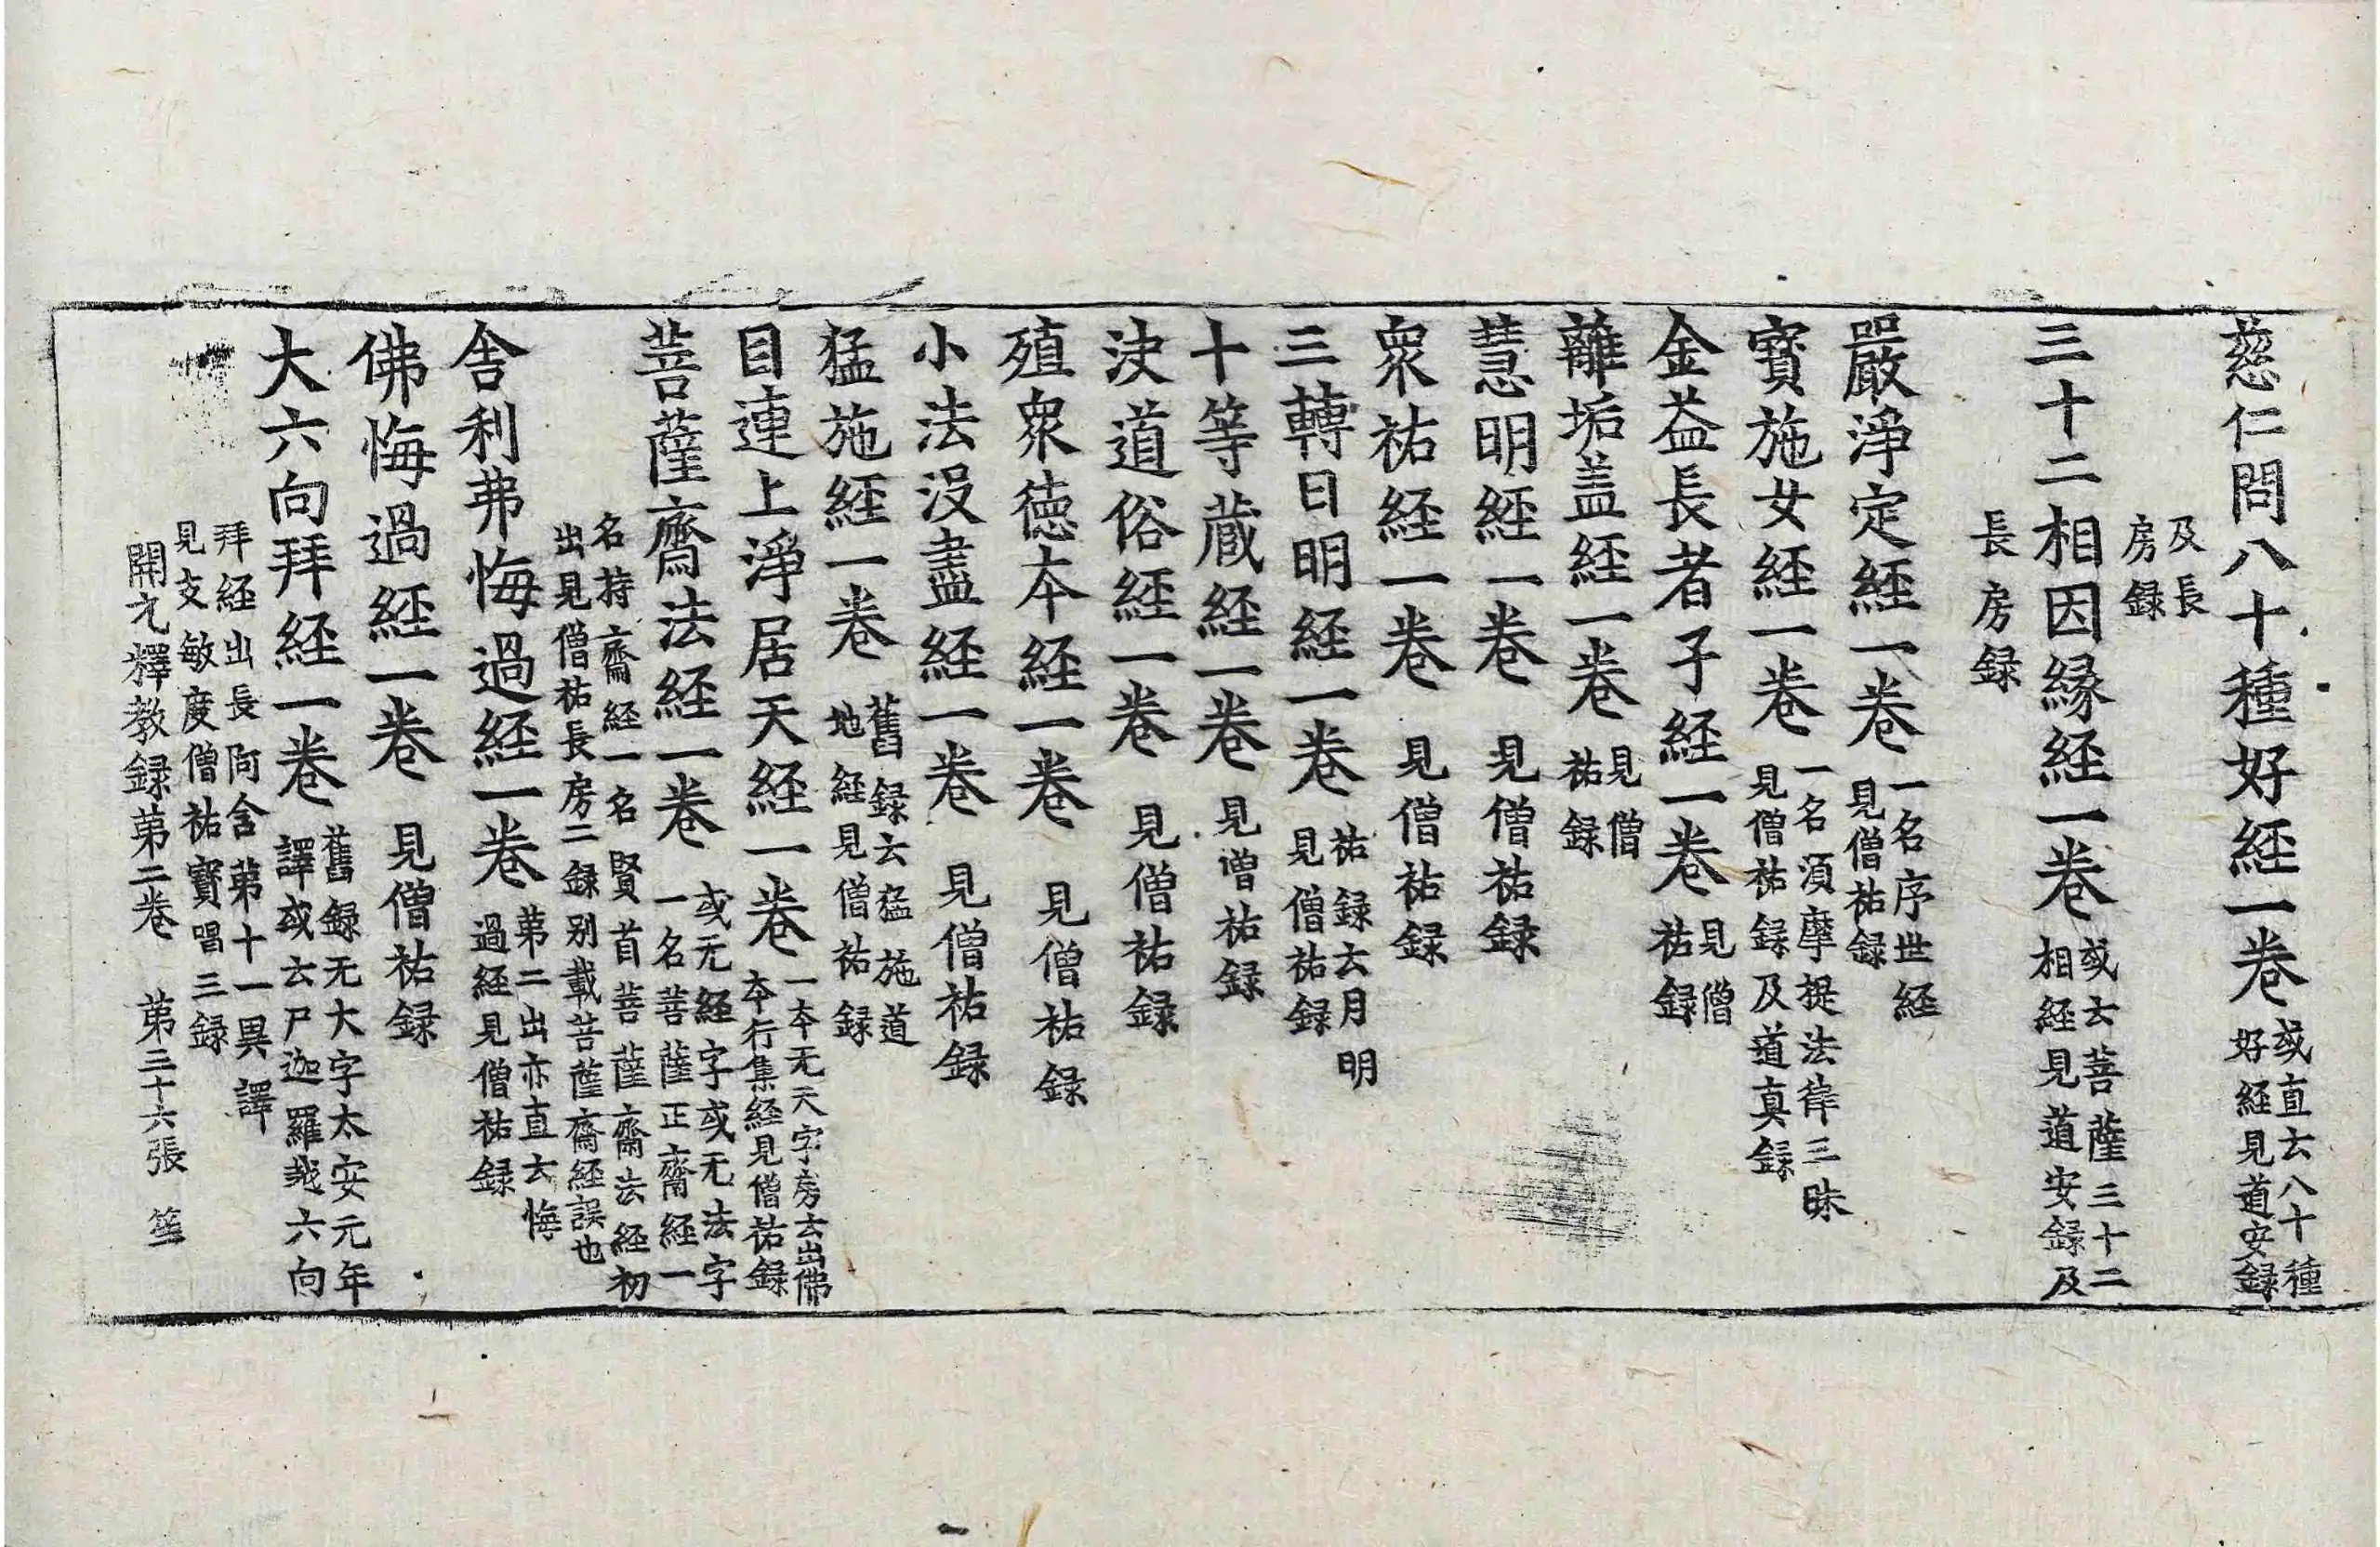 慈仁問八十種好經一卷 或直云八十種好經見道安録
及長房録
三十二相因縁經一卷 或云菩薩三十二相經見道安録及
長房録
嚴淨定經一卷 一名序世經見僧祐録
寶施女經一卷 一名須摩提法律三昧見僧祐録及道真録
金益長者子經一卷 見僧祐録
離垢盖經一卷 見僧祐録
慧明經一卷 見僧祐録
衆祐經一卷 見僧祐録
三轉日明經一卷 祐録云月明見僧祐録
十等藏經一卷 見僧祐録
決道俗經一卷 見僧祐録
殖衆德本經一卷 見僧祐録
小法没盡經一卷 見僧祐録
猛施經一卷 舊録云猛施道地經見僧祐録
目連上淨居天經一卷 一本无天字房云出佛本行集經見僧祐録
菩薩齋法經一卷 或无經字或无法字一名菩薩正齋經一
名持齋經一名賢首菩薩齋法經初出見僧祐長房二録别載菩薩齋經誤也
舍利弗悔過經一卷 第二出亦直云悔過經見僧祐録
佛悔過經一卷 見僧祐録
大六向拜經一卷 舊録无大字太安元年譯或云尸迦羅越六向
拜經出長阿含第十一異譯見支敏度僧祐寶唱三録
開元釋教録第二卷 第三十六張